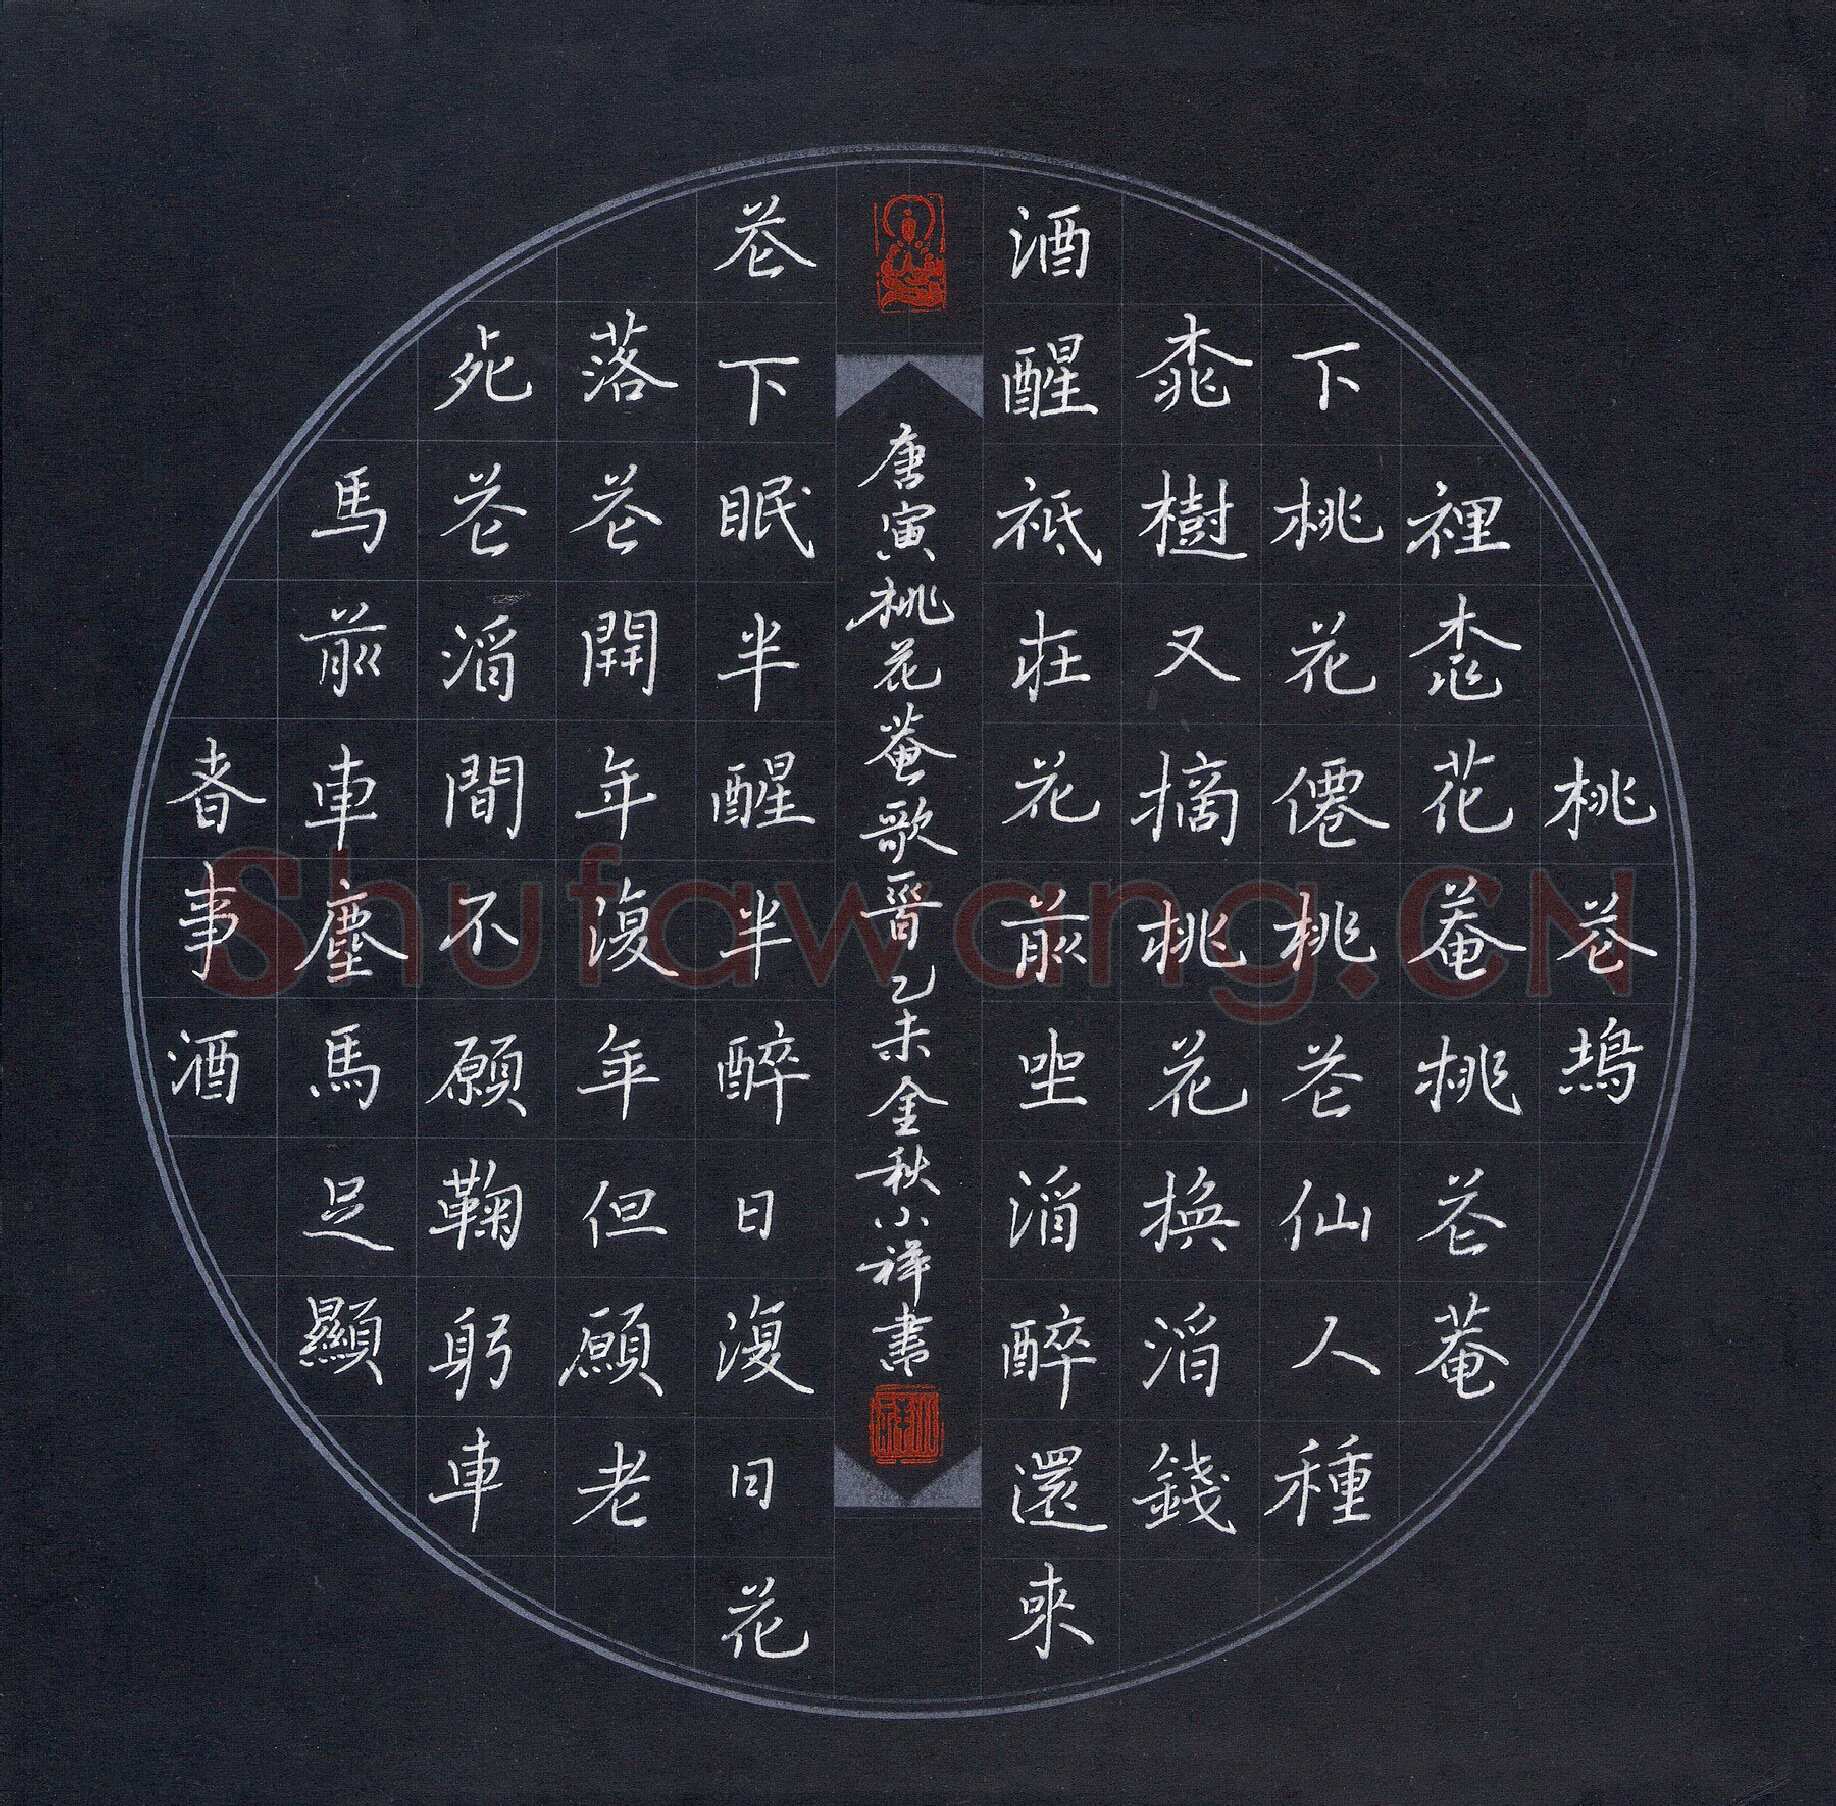 桃花塢
裡桃花菴桃花菴
下桃花僊桃花仙人種
桃樹又摘桃花換酒錢
酒醒祇在花前坐酒醉還來
唐寅桃花菴歌一首乙未金秋小祥書
花下眠半醒半醉日復日花
落花開年復年但願老
死花酒間不願鞠躬車
馬前車塵馬足顯
者事酒
Shufawang.CN